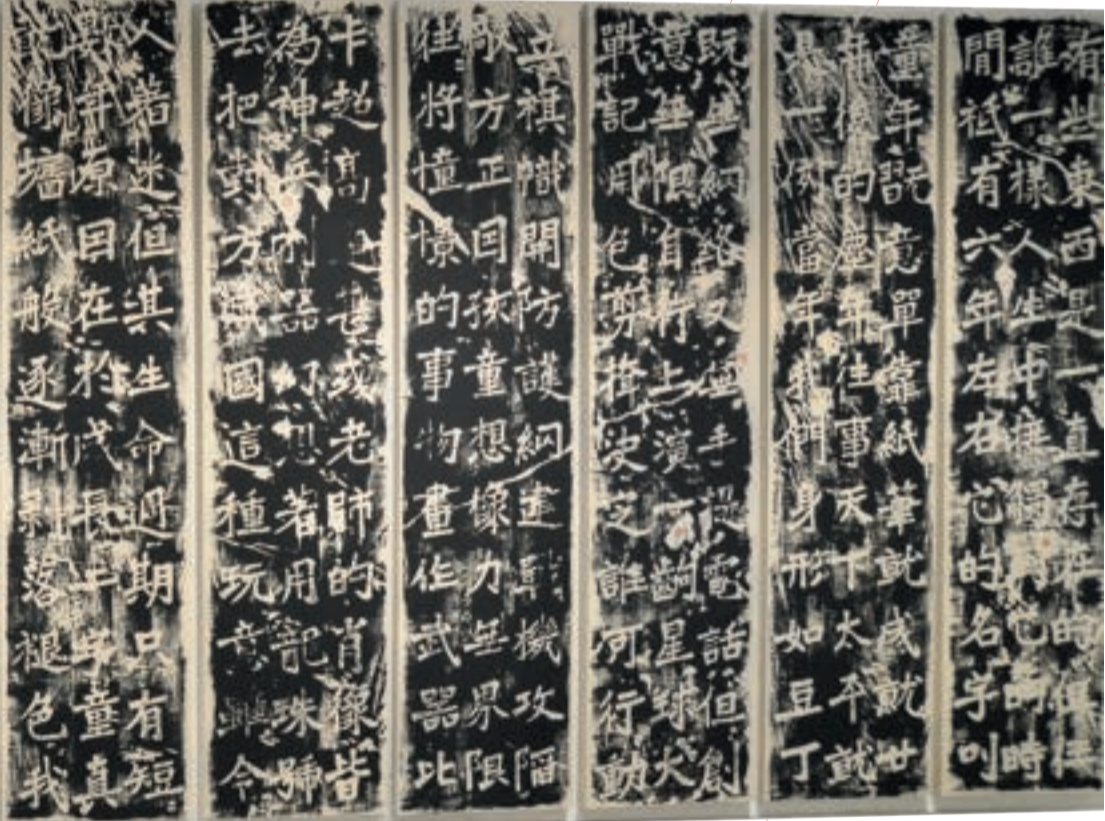 有些東西是一直存在的但
誰一樣人生中它的時
間祗有六年左右它的名字叫
童年記憶單靠紙筆就成就廿
年後的年往事天下太平就
是一例當年我們身形如豆丁
既無網絡又無手提電話但創
意無限自行上演一齣星球大
戰記用色剪接誰可行動
立旗幟開防護網建戰機攻陷
敵方正因孩童想像力無界限
往將憧憬的事物畫作武器比
卡超高達甚或老師的肖像皆
為神兵利器幻想著用珠號
去把對方滅國這種玩意雖令
人着迷但其生命週期只有短
數年原因在於成長中童真
就像牆紙般逐漸剝落褪色我